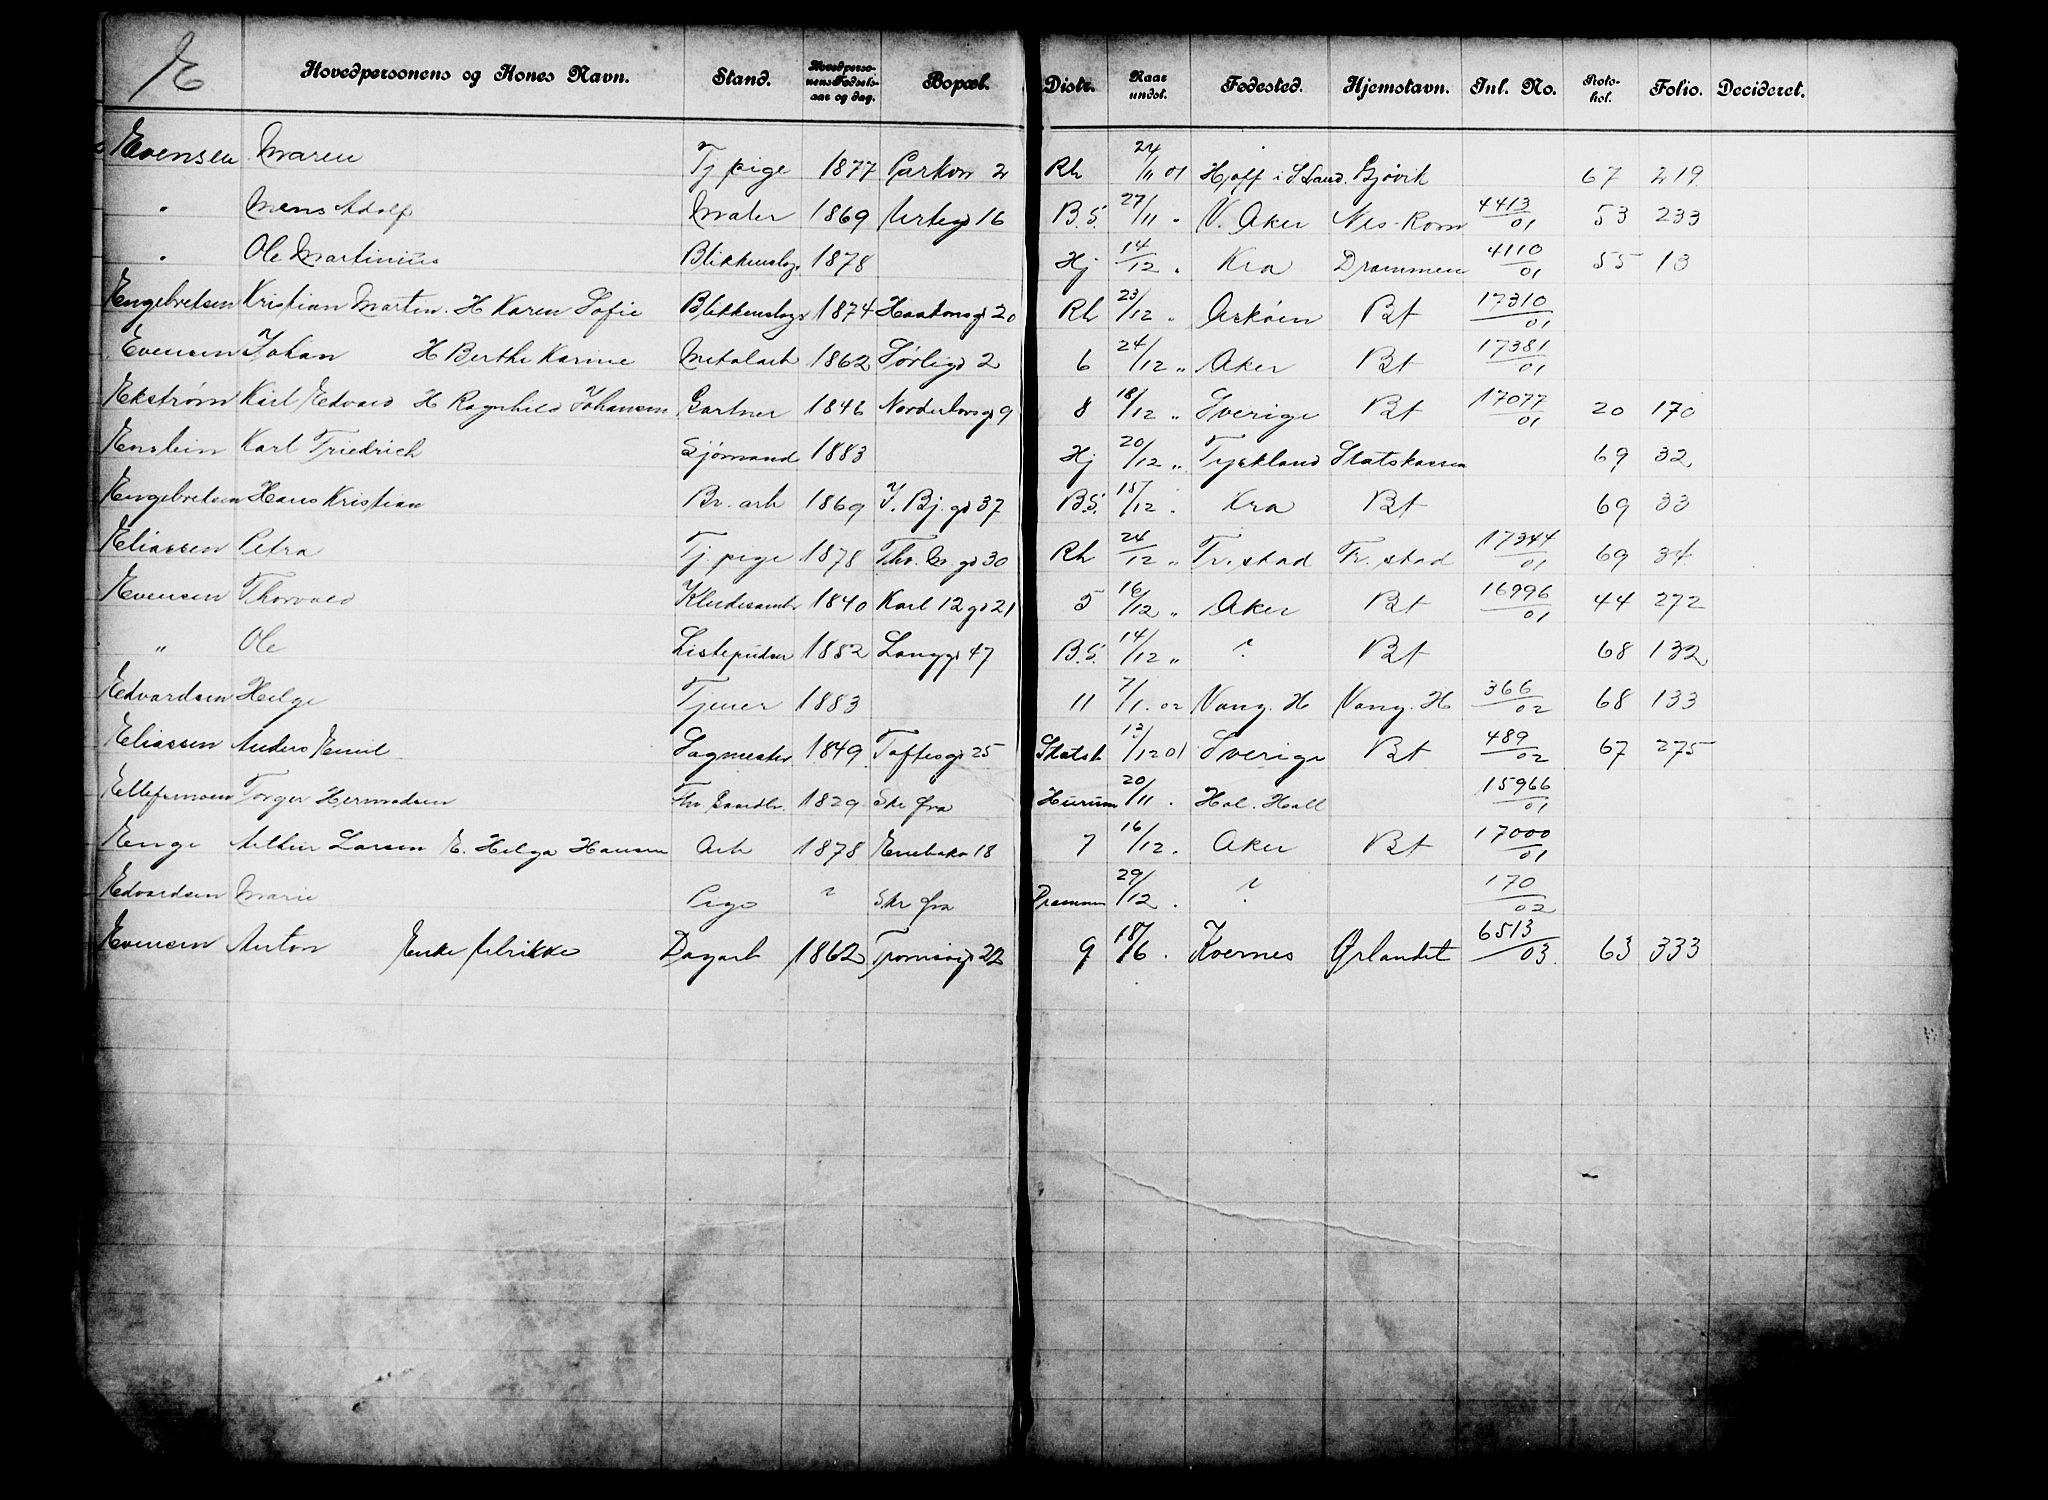 E Hovedpersonens og Kones Navn. Stand. Hovedpersonens Fødselsaar og dag. Bopæl. Distr. Naar undst. Fødested. Hjemstavn. Inl. No. Protokol. Folio. Decideret.
Evensen Maren Tj pige 1877 2 Rh 24/11 01 Hoff i S Land. Gjøvik 67 219
" Mens Adolf Maler 1869 Urtegd 16 B.S. 27/11 " V. Aker Nes-Rom 4413/01 53 233
" Ole Martinius Blikkenslag 1878 Hj 14/12 " Kra Drammen 4110/01 55 13
Engebretsen Kristian Martin. H Karen Sofie Blikkenslag 1874 Haakonsgd 20 Rh 23/12 " Askøen Bt 17310/01
Evensen Johan H Berthe Karine Metalarb 1862 Sørligd 2 6 24/12 " Aker Bt 17381/01
Ekstrøm Karl Edvard H Ragnhild Johansen Gartner 1846 9 8 18/12 " Sverige Bt 17077/01 20 170
Enslein Karl Friedrich Sjømand 1883 Hj 20/12 " Tyskland Statskassen 69 32
Engebretsen Hans Kristian Br. arb 1869 J. Bj. gd 37 B.S. 15/12 . Kra Bt 69 33
Eliassen Petra Tj. pige 1878 Tho. M. gd 30 Rh 24/12 " Fr. stad Fr. stad 17344/01 69 34
Evensen Thorvald Kludesamler 1840 Karl 12 gd 21 5 16/12 " Aker Bt 16996/01 44 272
" Ole Listepudser 1882 Langgd 47 B.S. 14/12 " ? Bt 68 132
Edvardsen Helge Tjener 1883 11 7/1. 02 Vang. H Vang. H 366/02 68 133
Eliassen Anders Emil Sagmester 1849 Toftesgd 25 Statsb 13/12 01 Sverige Bt 489/02 67 275
Ellefsensen Torger Hermodsen 1829 Skr fra Hurum 20/11 . Hol. Hall 15966/01
Enge Larsen E. Helga Hansen Arb 1878 Enebakv 18 7 16/12 . Aker Bt 17000/01
Edvardsen Marie Pige ? Skr fra Drammen 29/12 . ? 170/02
Evensen Anton Enke Ulrikke Dagarb 1862 Tromsøgd 22 9 18/6 . Kvernes Ørlandet 6513/03. 63 333